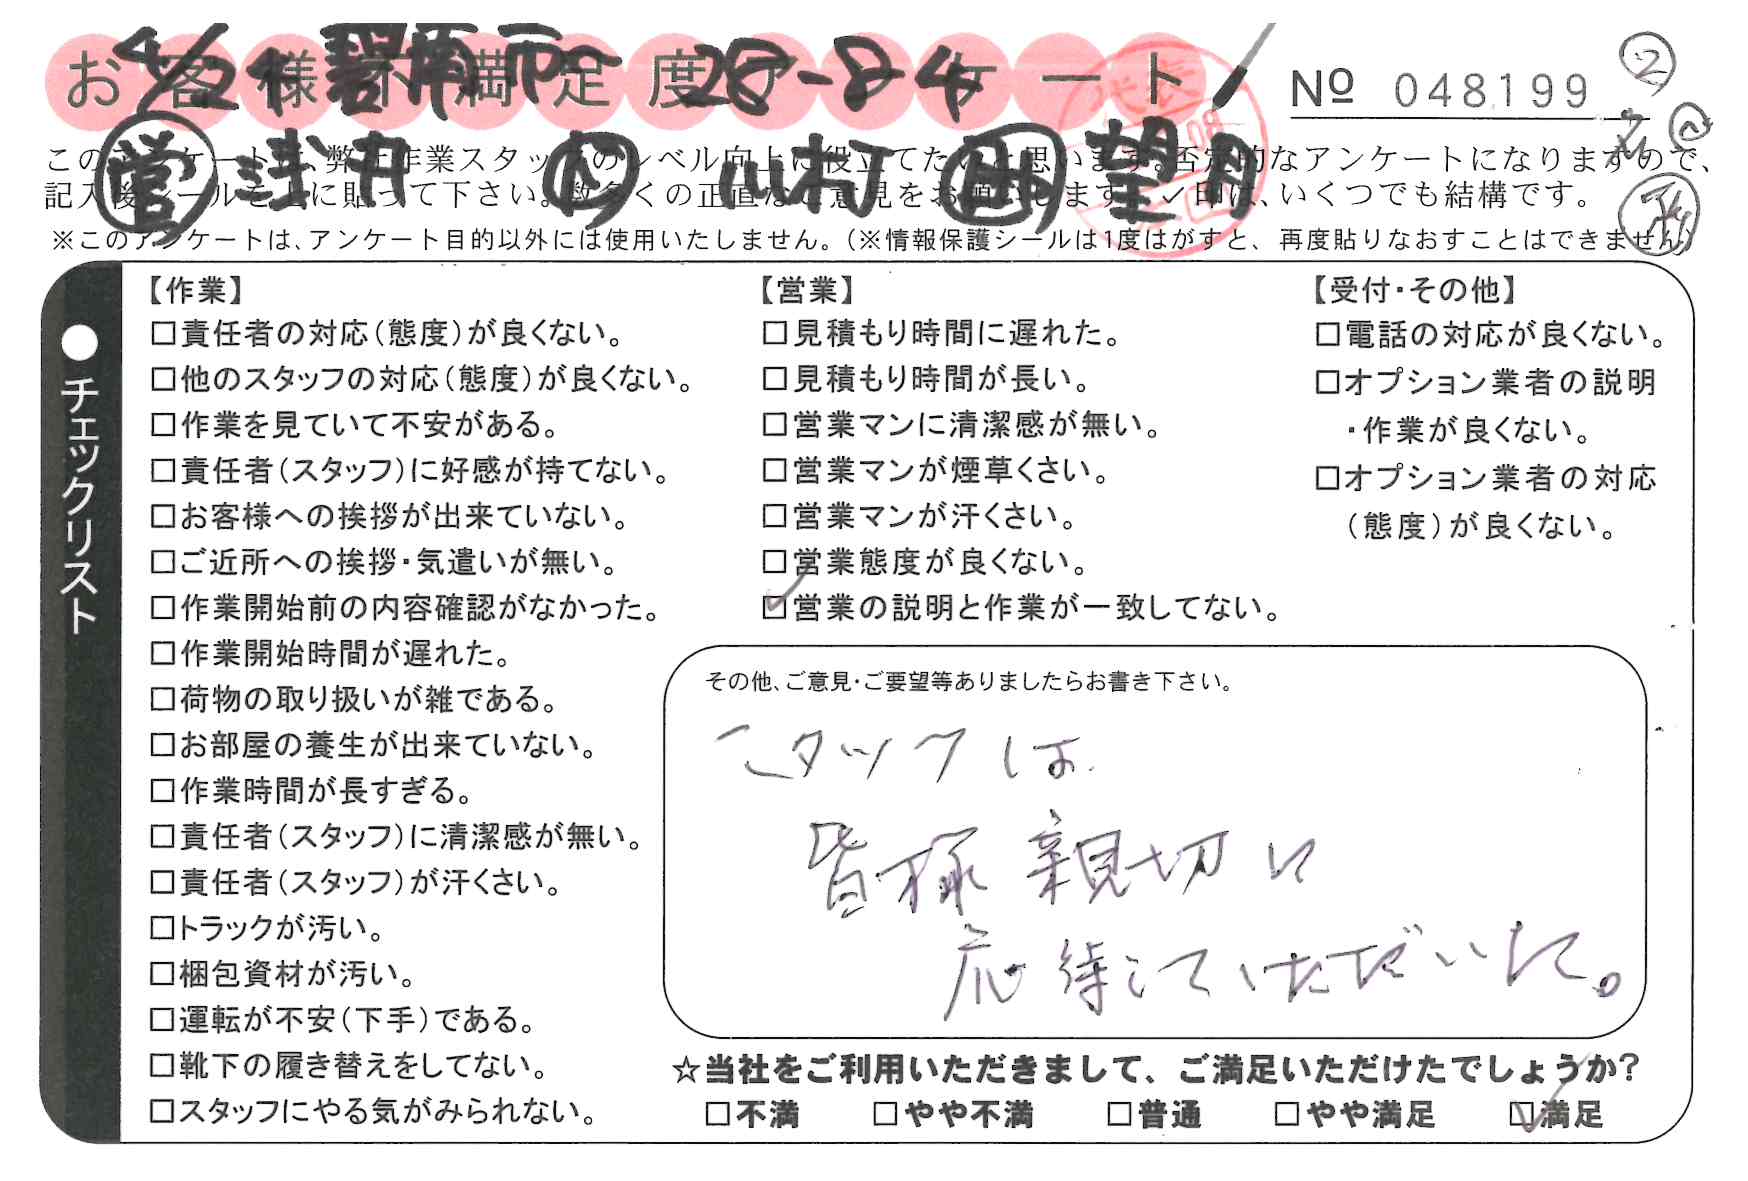 お客様不満足度アンケート
4/24 碧南市 28-84
№ 048199
②
営 浅井 A 山村 助 望月
このアンケートは、弊社作業スタッフのレベル向上に役立てたいと思います。否定的なアンケートになりますので、
記入後シールを上に貼って下さい。数多くの正直なご意見をお願いします。✓印は、いくつでも結構です。
※このアンケートは、アンケート目的以外には使用いたしません。(※情報保護シールは1度はがすと、再度貼りなおすことはできません)
●チェックリスト
【作業】
□責任者の対応(態度)が良くない。
□他のスタッフの対応(態度)が良くない。
□作業を見ていて不安がある。
□責任者(スタッフ)に好感が持てない。
□お客様への挨拶が出来ていない。
□ご近所への挨拶・気遣いが無い。
□作業開始前の内容確認がなかった。
□作業開始時間が遅れた。
□荷物の取り扱いが雑である。
□お部屋の養生が出来ていない。
□作業時間が長すぎる。
□責任者(スタッフ)に清潔感が無い。
□責任者(スタッフ)が汗くさい。
□トラックが汚い。
□梱包資材が汚い。
□運転が不安(下手)である。
□靴下の履き替えをしてない。
□スタッフにやる気がみられない。
【営業】
□見積もり時間に遅れた。
□見積もり時間が長い。
□営業マンに清潔感が無い。
□営業マンが煙草くさい。
□営業マンが汗くさい。
□営業態度が良くない。
☑営業の説明と作業が一致してない。
【受付・その他】
□電話の対応が良くない。
□オプション業者の説明
・作業が良くない。
□オプション業者の対応
(態度)が良くない。
その他、ご意見・ご要望等ありましたらお書き下さい。
スタッフは
皆様親切に
応待していただいた。
☆当社をご利用いただきまして、ご満足いただけたでしょうか?
□不満 □やや不満 □普通 □やや満足 ☑満足